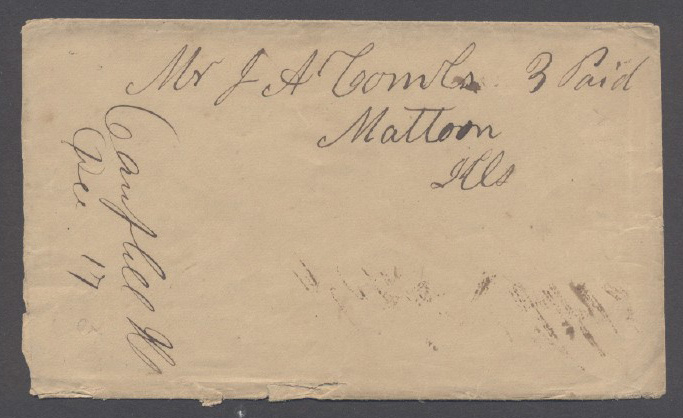 Mr J A Combs 3 Paid
Mattoon
Ills
Campbell Il
Dec 17